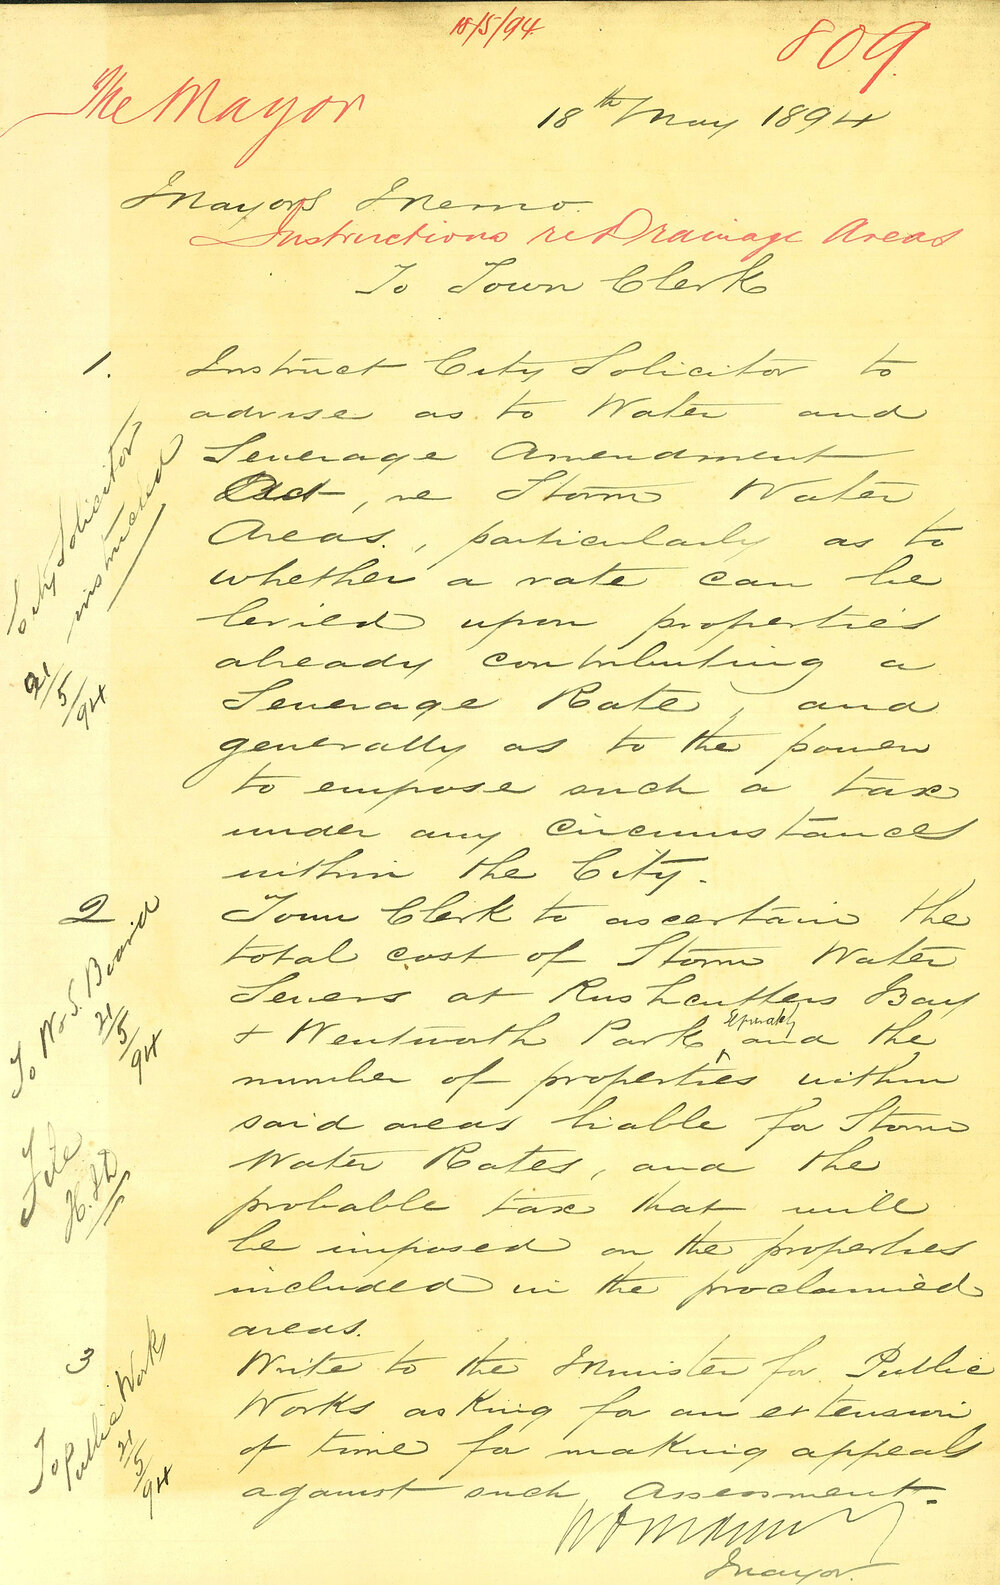 18/5/94
809.
The Mayor
18th May 1894
Mayors Memo.
Instructions re Drainage Areas
To Town Clerk
1. Instruct City Solicitor to
advise as to Water and
Sewerage Amendment
Act, re Storm Water
Areas., particularly as to
whether a rate can be
levied upon properties
already contributing a
Sewerage Rate, and
generally as to the power
to empose such a tax
under any circumstances
within the City.
City Solicitor
instructed
21/5/94
2 Town Clerk to ascertain the
total cost of Storm Water
Sewers at Rushcutters Bay
& Wentworth Park separately and the
number of properties within
said areas liable for Storm
Water Rates, and the
probable tax that will
be imposed on the properties
included in the proclaimed
areas.
To W & S. Board
21/5/94
File
3 Write to the Minister for Public
Works asking for an extension
of time for making appeals
against such Assessment.
To Public Works
21/5/94
Mayor.